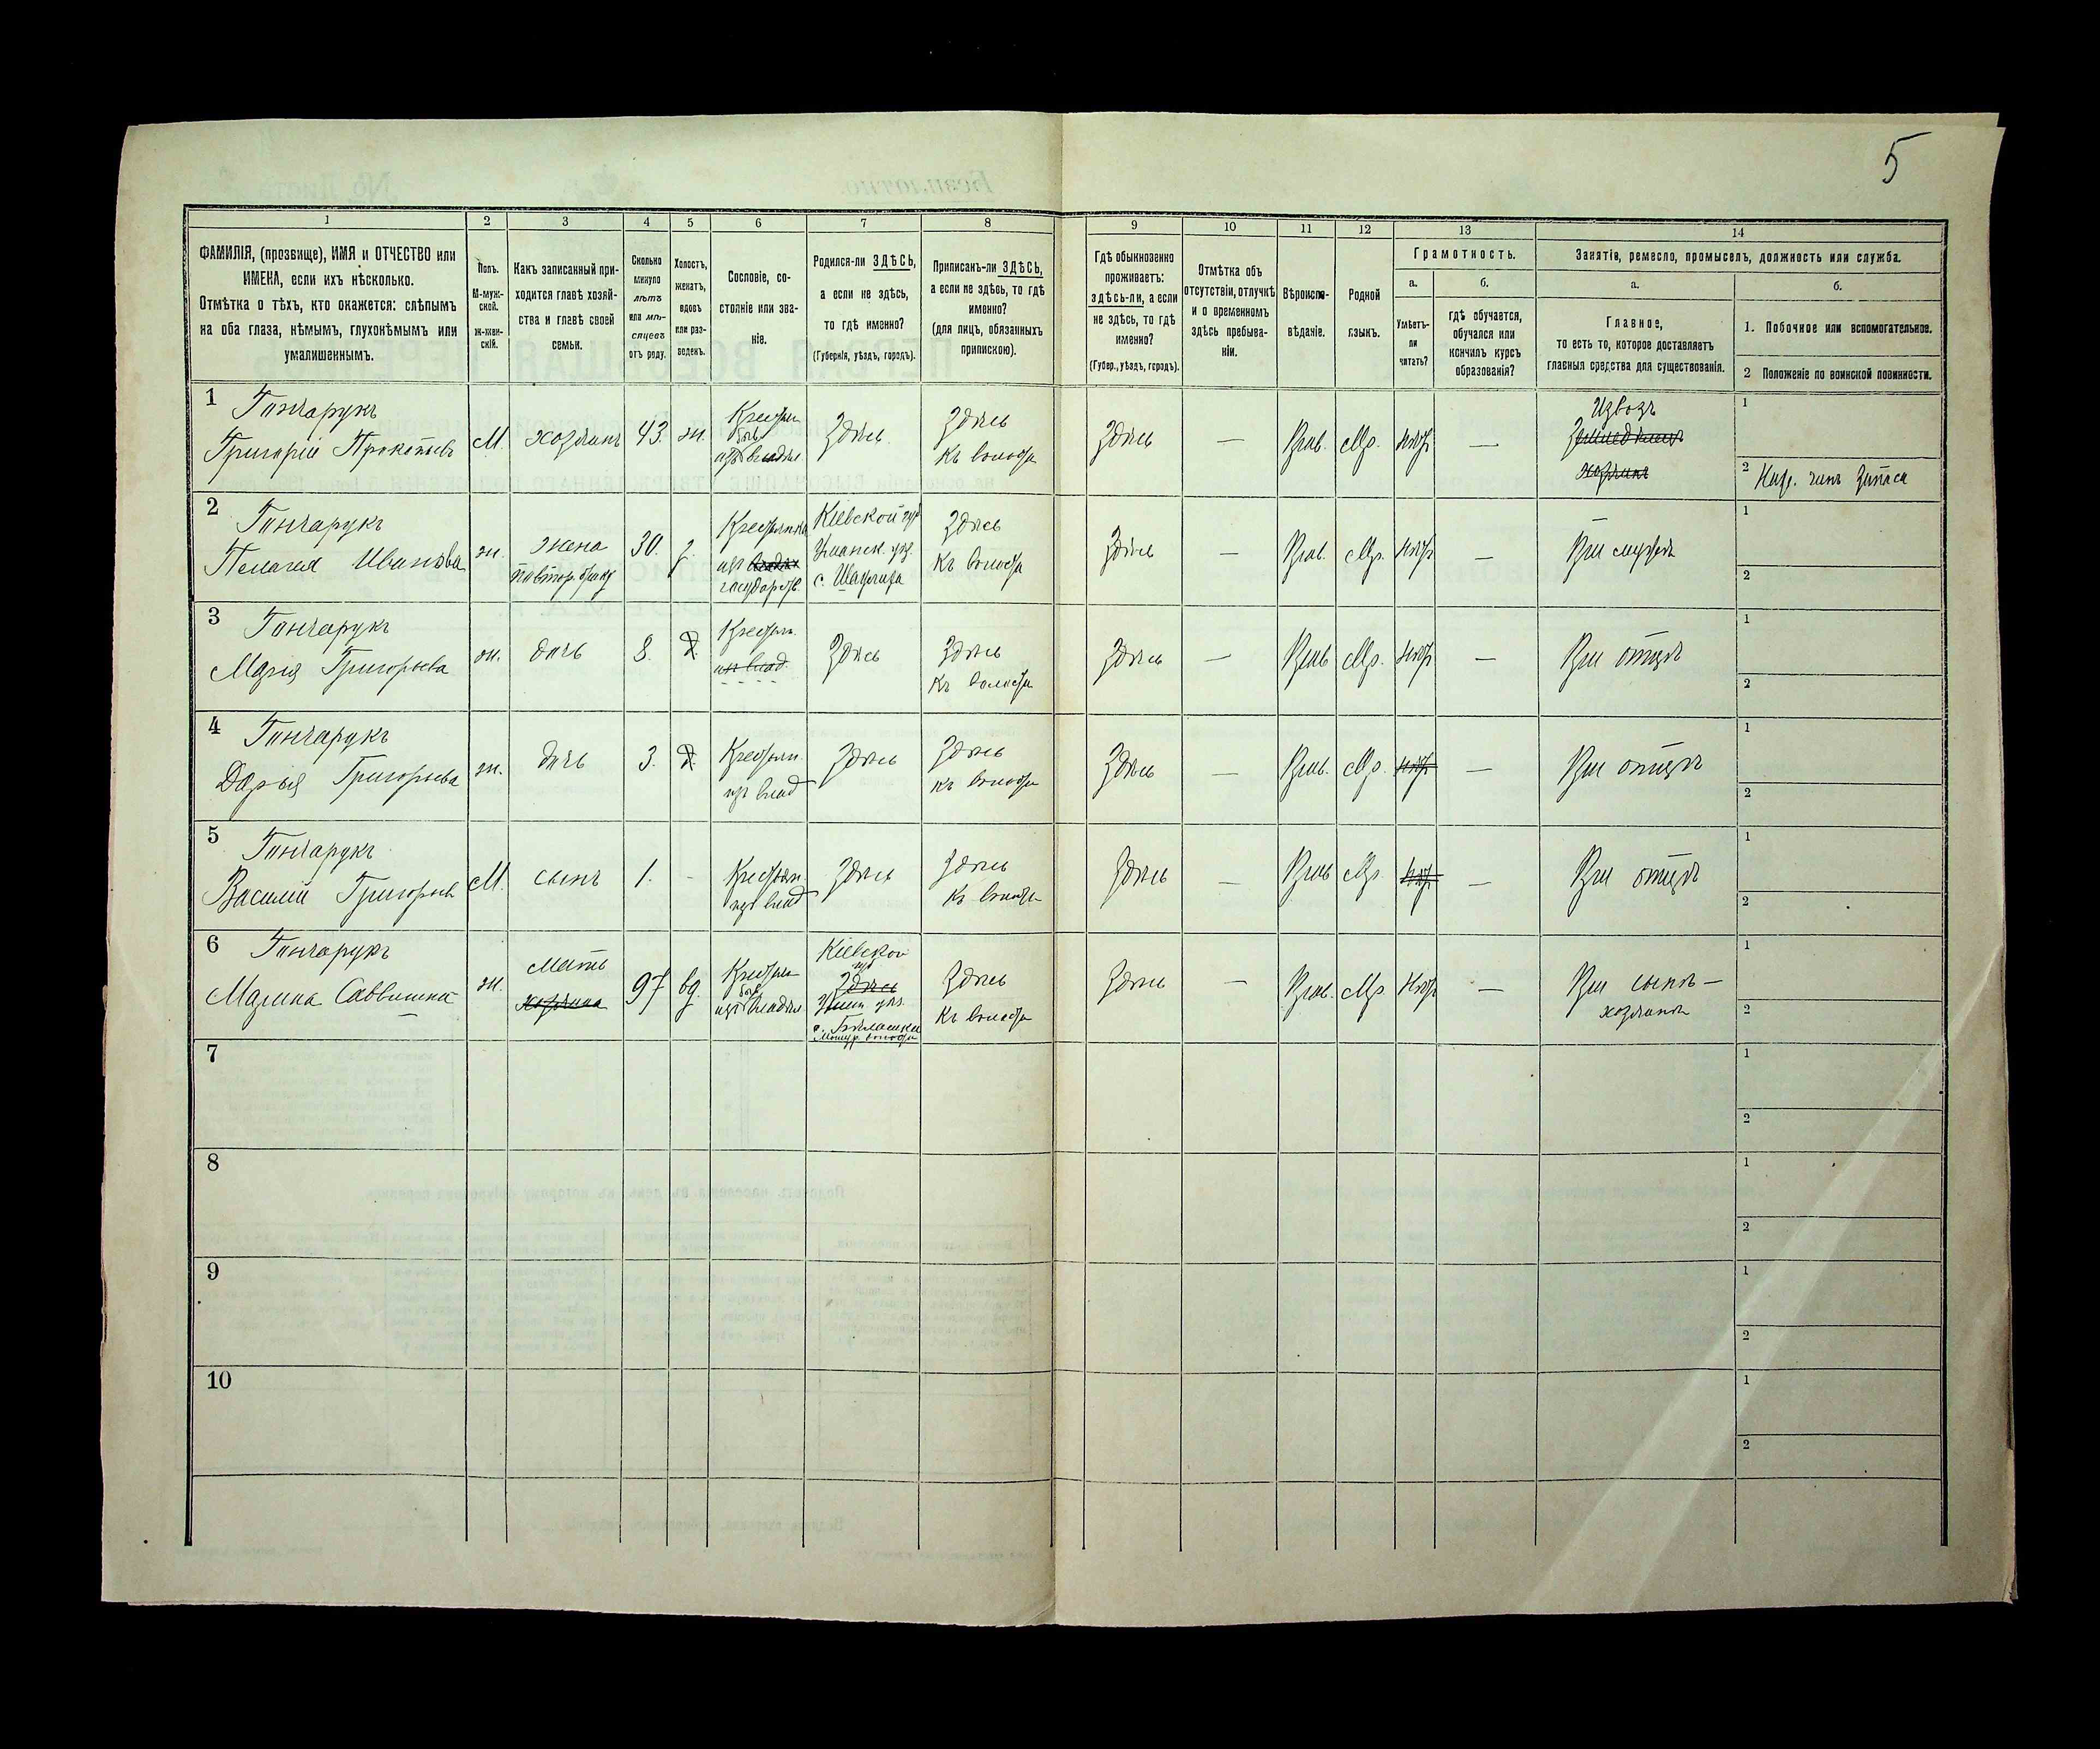 5
1 2 3 4 5 6 7 8 9 10 11 12 13 14
ФАМИЛІЯ, (прозвище), ИМЯ и ОТЧЕСТВО или
ИМЕНА, если ихъ нѣсколько.
Отмѣтка о тѣхъ, кто окажется: слѣпымъ
на оба глаза, нѣмымъ, глухонѣмымъ или
умалишеннымъ.
Полъ.
М-муж-
ской.
ж-жен-
скій.
Какъ записанный при-
ходится главѣ хозяй-
ства и главѣ своей
семьи.
Сколько
минуло
лѣтъ
или мѣ-
сяцевъ
отъ роду.
Холостъ,
женатъ,
вдовъ
или раз-
веденъ.
Сословіе, со-
стояніе или зва-
ніе.
Родился-ли ЗДѢСЬ,
а если не здѣсь,
то гдѣ именно?
(Губернія, уѣздъ, городъ).
Приписанъ-ли ЗДѢСЬ,
а если не здѣсь, то гдѣ
именно?
(для лицъ, обязанныхъ
припискою).
Гдѣ обыкновенно
проживаетъ:
здѣсь-ли, а если
не здѣсь, то гдѣ
именно?
(Губер., уѣздъ, городъ).
Отмѣтка объ
отсутствіи, отлучкѣ
и о временномъ
здѣсь пребыва-
ніи.
Вѣроиспо-
вѣданіе.
Родной
языкъ.
Грамотность.
а.
Умѣетъ-
ли
читать?
б.
гдѣ обучается,
обучался или
кончилъ курсъ
образованія?
Занятіе, ремесло, промыселъ, должность или служба.
а.
Главное,
то есть то, которое доставляетъ
главныя средства для существованія.
б.
1. Побочное или вспомогательное.
2 Положеніе по воинской повинности.
1 Гончарукъ
Григорій Прокопьевъ
М. хозяинъ 43. ж.
Крестьян
быв
изъ владѣл
Здѣсь
Здѣсь
къ волости
Здѣсь — Прав. Мр. —
Извозъ
хозяинъ
1
2 запаса
2 Гончарукъ
Пелагея Иванова
ж. жена 30. з.
Крестьянка
изъ
государств.
Кіевской губ
Уманск. уѣз.
с.
Здѣсь
къ волости
Здѣсь — Прав. Мр. —
При мужѣ
1
2
3 Гончарукъ
Марія Григорьева
ж. дочь 8.
Крестьян.
изъ влад.
Здѣсь
Здѣсь
къ волости
Здѣсь — Прав. Мр. —
При отцѣ
1
2
4 Гончарукъ
Дарья Григорьева
ж. дочь 3.
Крестьян.
изъ влад
Здѣсь
Здѣсь
къ волости
Здѣсь — Прав. Мр. —
При отцѣ
1
2
5 Гончарукъ
Василій Григорьев
М. сынъ 1. -
Крестьян.
изъ влад
Здѣсь
Здѣсь
къ волости
Здѣсь — Прав. Мр. —
При отцѣ
1
2
6 Гончарукъ
Марина Саввишна
ж.
мать
хозяина
97 вд.
Крестьян
быв
изъ владѣл
Кіевской
губ
Здѣсь
уѣз.
Здѣсь
къ волости
Здѣсь — Прав. Мр. —
При сынѣ —
хозяинѣ
1
2
7 1
2
8 1
2
9 1
2
10 1
2